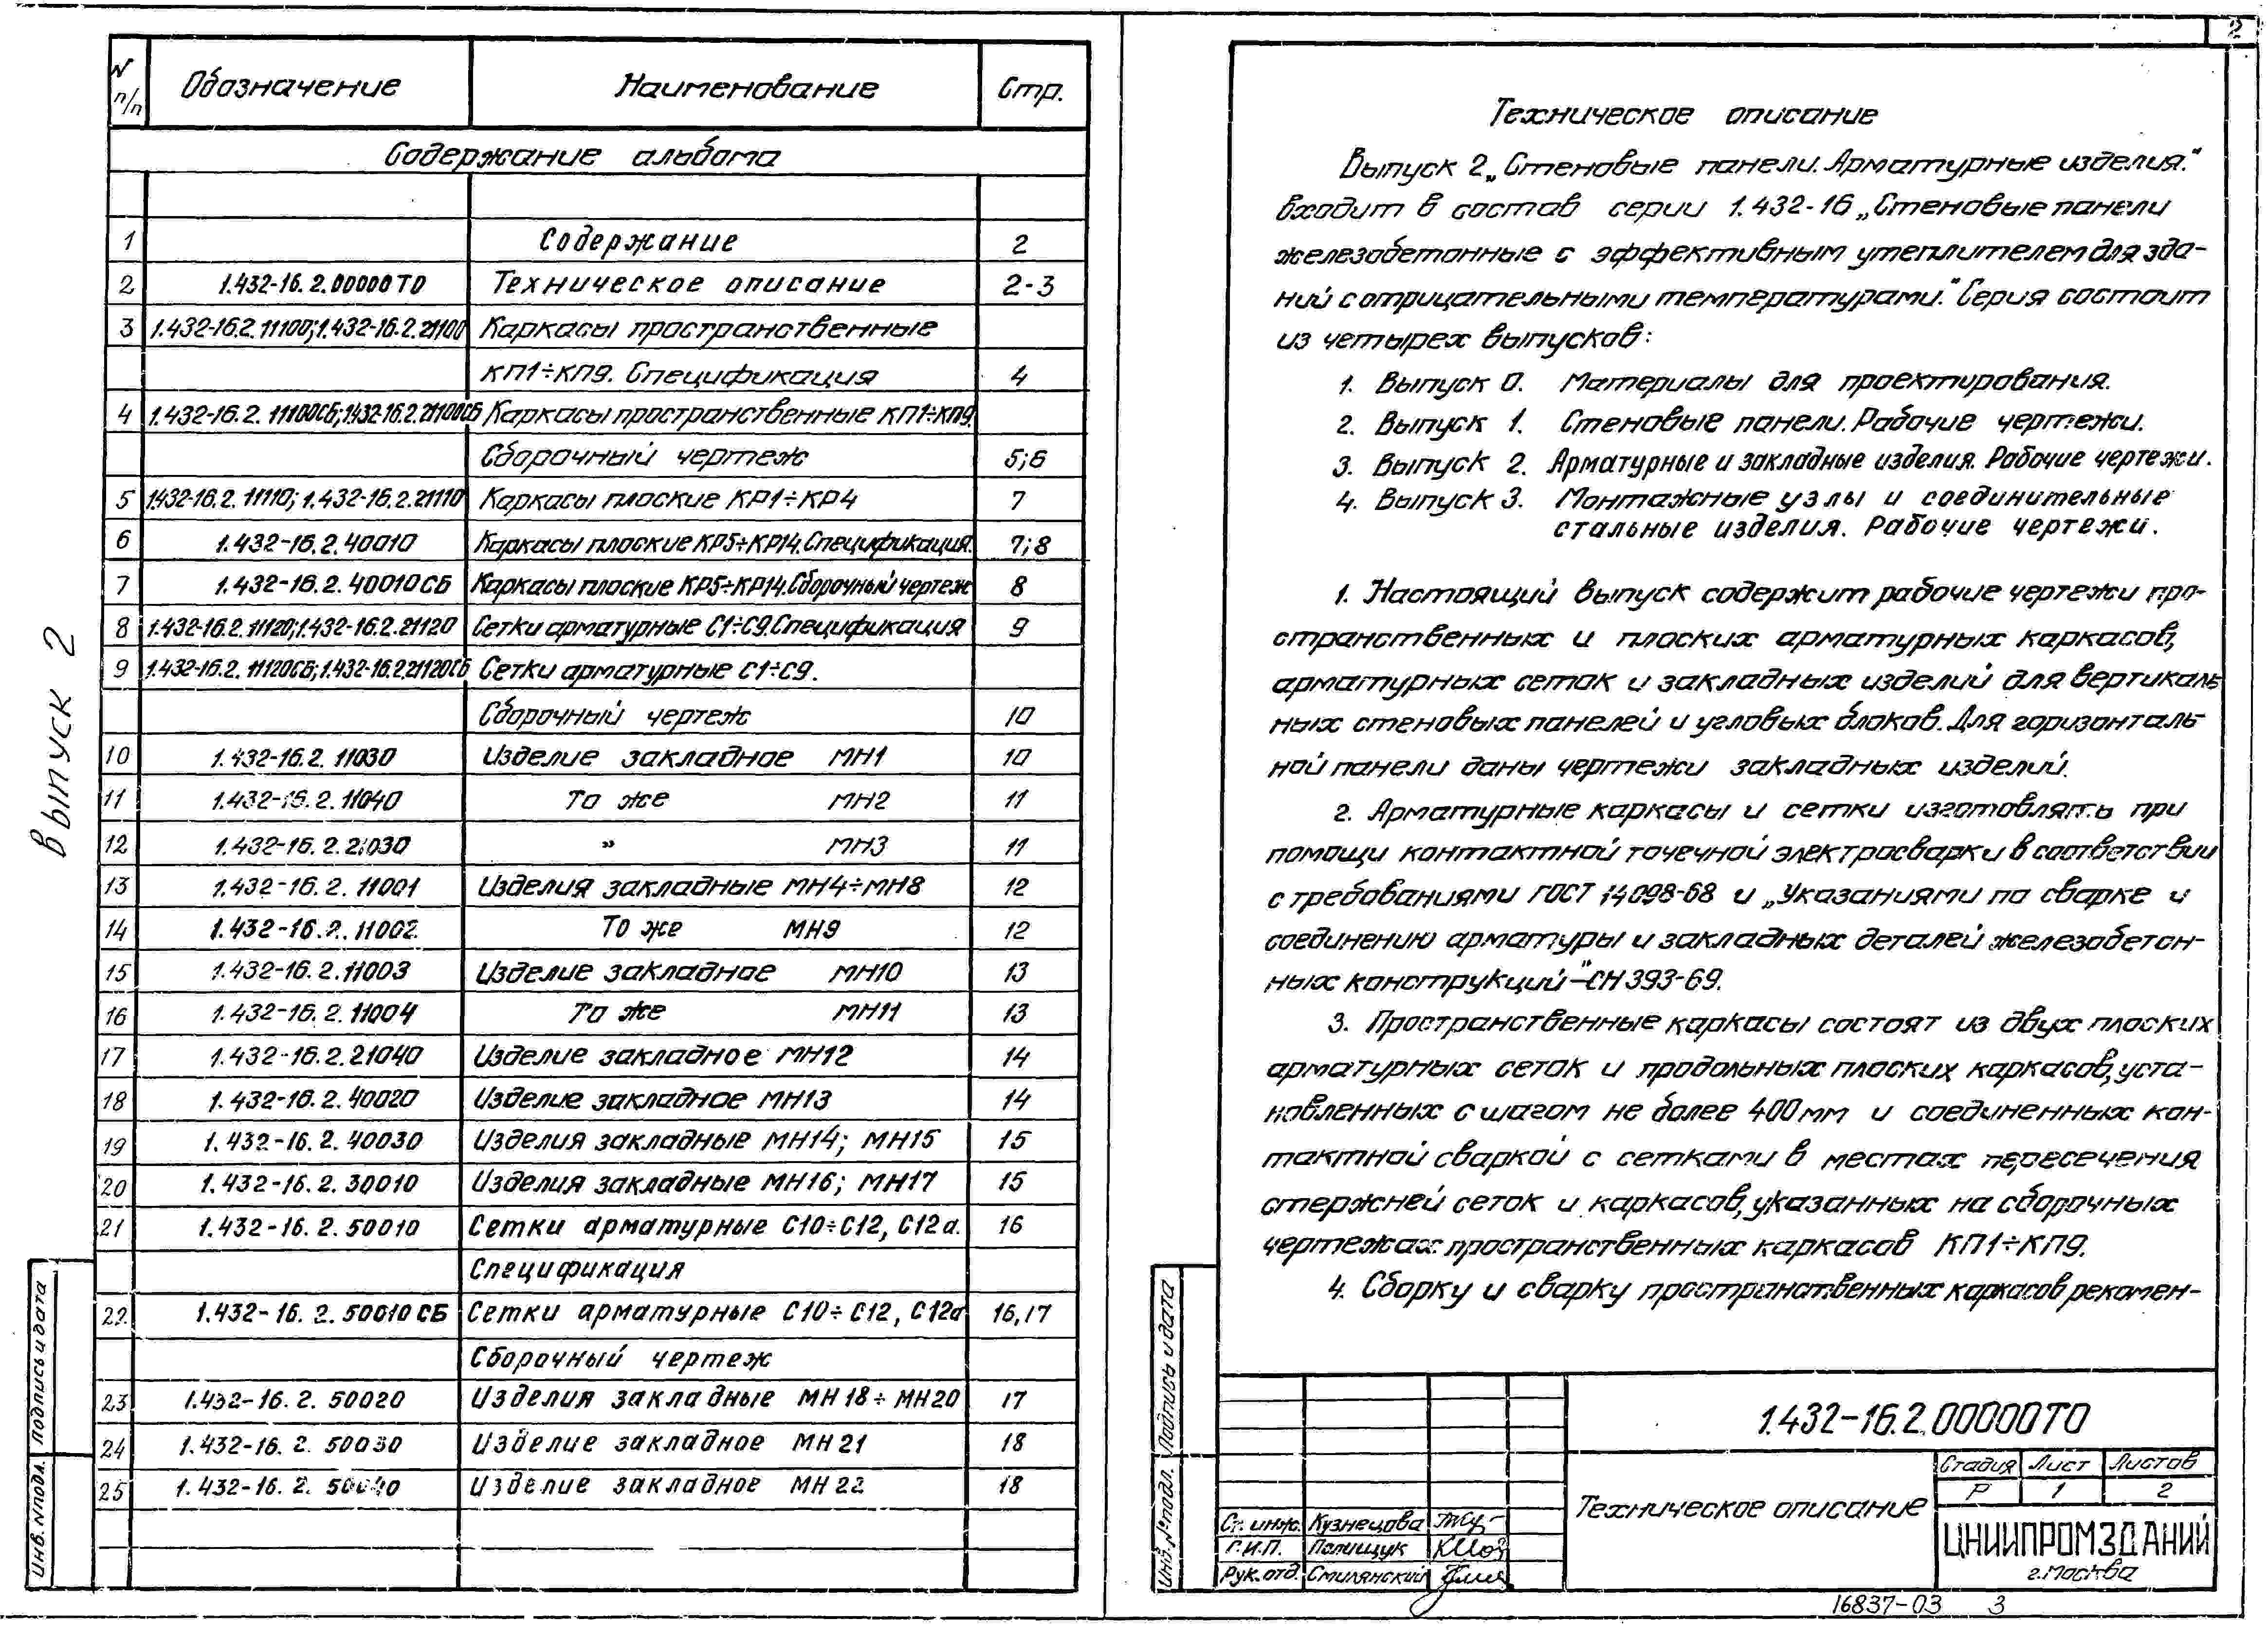 2
N п/п Обозначение Наименование Стр.
Содержание альбома
1 Содержание 2
2 1.432-16.2.00000ТО Техническое описание 2-3
3 1.432-16.2.11100; 1.432-16.2.21100 Каркасы пространственные
КП1÷КП9. Спецификация 4
4 1.432-16.2.11100СБ; 1.432-16.2.21100СБ Каркасы пространственные КП1÷КП9.
Сборочный чертеж 5;6
5 1.432-16.2.11110; 1.432-16.2.21110 Каркасы плоские КР1÷КР4 7
6 1.432-16.2.40010 Каркасы плоские КР5÷КР14. Спецификация. 7;8
7 1.432-16.2.40010СБ Каркасы плоские КР5÷КР14. Сборочный чертеж 8
8 1.432-16.2.11120; 1.432-16.2.21120 Сетки арматурные С1÷С9. Спецификация 9
9 1.432-16.2.11120СБ; 1.432-16.2.21120СБ Сетки арматурные С1÷С9.
Сборочный чертеж 10
10 1.432-16.2.11030 Изделие закладное МН1 10
11 1.432-16.2.11040 То же МН2 11
12 1.432-16.2.21030 " МН3 11
13 1.432-16.2.11001 Изделия закладные МН4÷МН8 12
14 1.432-16.2.11002 То же МН9 12
15 1.432-16.2.11003 Изделие закладное МН10 13
16 1.432-16.2.11004 То же МН11 13
17 1.432-16.2.21040 Изделие закладное МН12 14
18 1.432-16.2.40020 Изделие закладное МН13 14
19 1.432-16.2.40030 Изделия закладные МН14; МН15 15
20 1.432-16.2.30010 Изделия закладные МН16; МН17 15
21 1.432-16.2.50010 Сетки арматурные С10÷С12, С12а. 16
Спецификация
22 1.432-16.2.50010СБ Сетки арматурные С10÷С12, С12а 16,17
Сборочный чертеж
23 1.432-16.2.50020 Изделия закладные МН18÷МН20 17
24 1.432-16.2.50030 Изделие закладное МН21 18
25 1.432-16.2.50040 Изделие закладное МН22 18
Выпуск 2
Подпись и дата
Инв. N подл.
Техническое описание
Выпуск 2 „Стеновые панели. Арматурные изделия."
входит в состав серии 1.432-16 „Стеновые панели
железобетонные с эффективным утеплителем для зда-
ний с отрицательными температурами." Серия состоит
из четырех выпусков:
1. Выпуск 0. Материалы для проектирования.
2. Выпуск 1. Стеновые панели. Рабочие чертежи.
3. Выпуск 2. Арматурные и закладные изделия. Рабочие чертежи.
4. Выпуск 3. Монтажные узлы и соединительные
стальные изделия. Рабочие чертежи.
1. Настоящий выпуск содержит рабочие чертежи про-
странственных и плоских арматурных каркасов,
арматурных сеток и закладных изделий для вертикаль
ных стеновых панелей и угловых блоков. Для горизонталь
ной панели даны чертежи закладных изделий.
2. Арматурные каркасы и сетки изготовлять при
помощи контактной точечной электросварки в соответствии
с требованиями ГОСТ 14098-68 и „Указаниями по сварке и
соединению арматуры и закладных деталей железобетон-
ных конструкций"-СН 393-69.
3. Пространственные каркасы состоят из двух плоских
арматурных сеток и продольных плоских каркасов, уста-
новленных с шагом не более 400мм и соединенных кон-
тактной сваркой с сетками в местах пересечения
стержней сеток и каркасов, указанных на сборочных
чертежах пространственных каркасов КП1÷КП9.
4. Сборку и сварку пространственных каркасов рекомен-
Подпись и дата
Инв. № подл.
1.432-16.2.00000ТО
Техническое описание
Стадия Лист Листов
Р 1 2
ЦНИИПРОМЗДАНИЙ
г. Москва
Ст. инж. Кузнецова
Г.И.П. Полищук
Рук. отд. Смилянский
16837-03 3